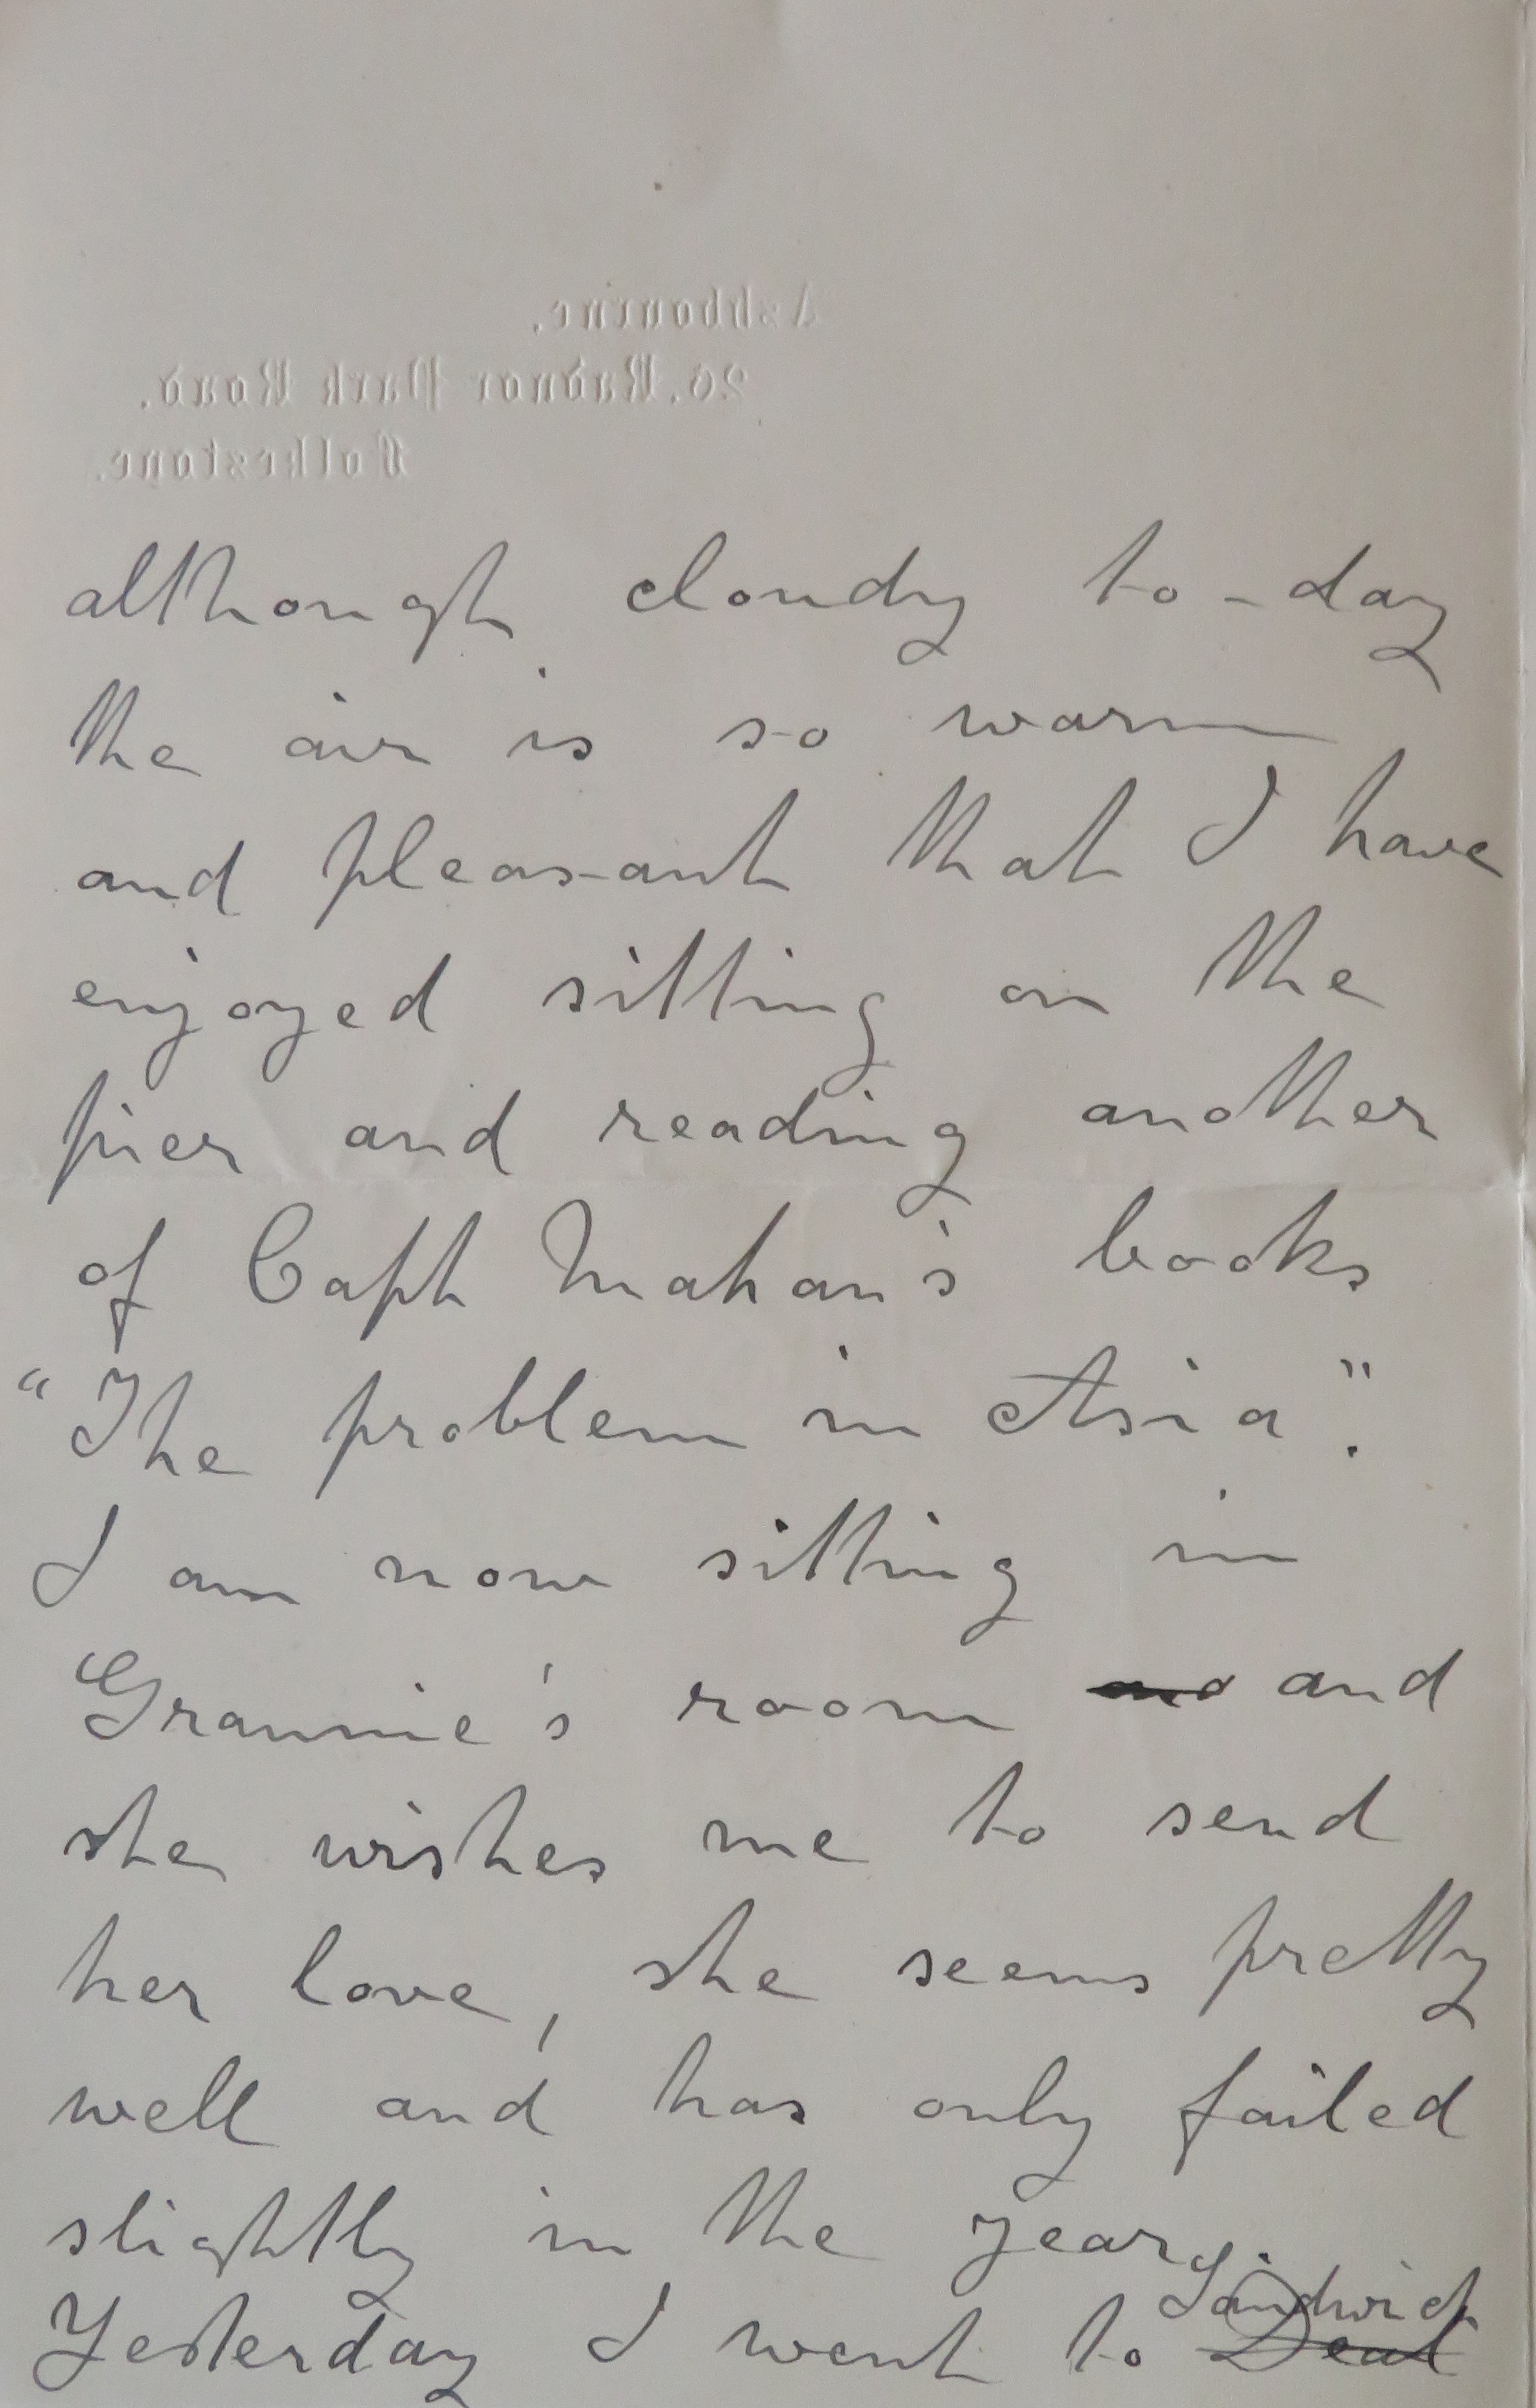 Ashbourne,
26, Radnor Park Road.
Folkestone.
although cloudy to-day
the air is so warm
and pleasant that I have
enjoyed sitting on the
pier and reading another
of Capt Mahan's books
"The problem in Asia".
I am now sitting in
Grannie's room and
she wishes me to send
her love, she seems pretty
well and has only failed
slightly in the year
Sandwich
Yesterday I went to Deal